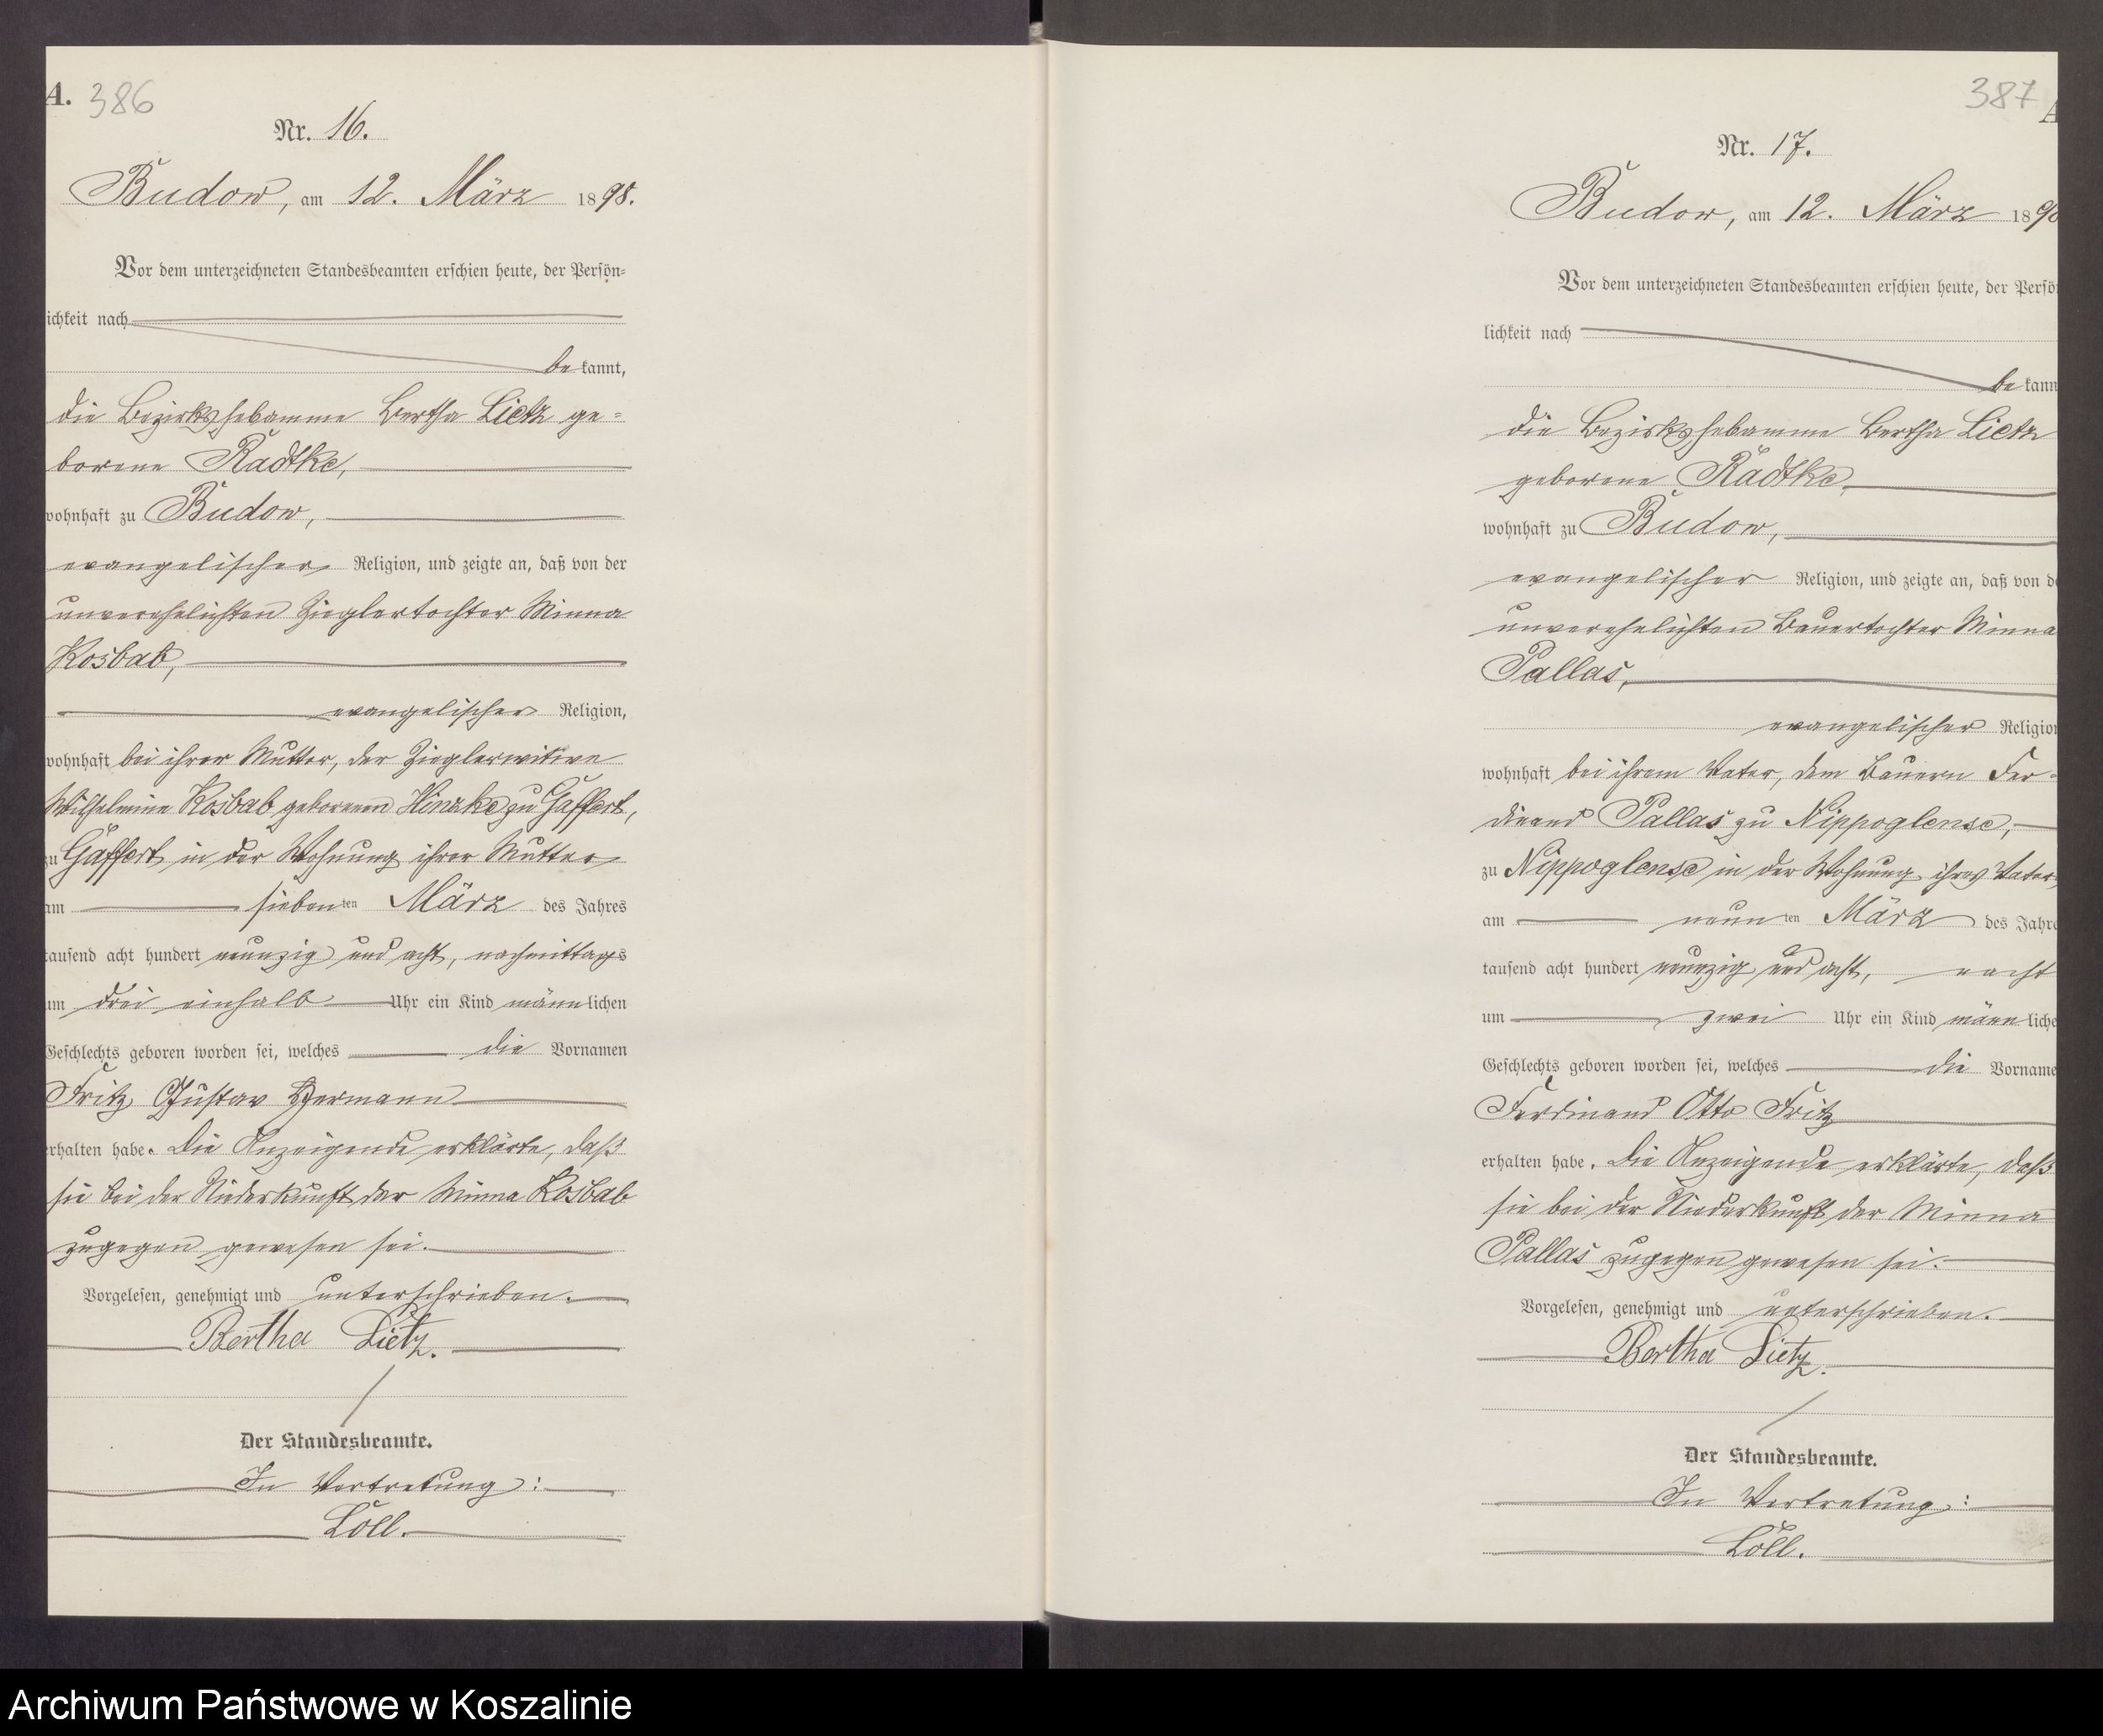 A. 386
Nr. 16.
Budow, am 12. März 1898.
Vor dem unterzeichneten Standesbeamten erschien heute, der Persön-
ichkeit nach
be kannt,
die Bezirkshebamme Bertha Lietz ge=
borene Radtke,
wohnhaft zu Budow,
evangelischer Religion, und zeigte an, daß von der
unverehelichten Zieglertochter Minna
Kosbab,
evangelischer Religion,
wohnhaft bei ihrer Mutter, der Zieglerwitwe
Wilhelmine Kosbab geborenen Hinzke zu Gaffert,
zu Gaffert in der Wohnung ihrer Mutter
am siebenten März des Jahres
tausend acht hundert neunzig und acht, nachmittags
um drei einhalb Uhr ein Kind männlichen
Geschlechts geboren worden sei, welches die Vornamen
Fritz Gustav Hermann
erhalten habe. Die Anzeigende erklärte, daß
sie bei der Niederkunft der Minna Kosbab
zugegen gewesen sei.
Vorgelesen, genehmigt und unterschrieben.
Bertha Lietz.
Der Standesbeamte.
In Vertretung:
Löll.
387 A
Nr. 17.
Budow, am 12. März 189
Vor dem unterzeichneten Standesbeamten erschien heute, der Persö
lichkeit nach
be kann
die Bezirkshebamme Bertha Lietz
geborene Radtke,
wohnhaft zu Budow,
evangelischer Religion, und zeigte an, daß von de
unverehelichten Bauertochter Minna
Pallas,
evangelischer Religion
wohnhaft bei ihrem Vater, dem Bauern Fer-
dinand Pallas zu Nippoglense,
zu Nippoglense in der Wohnung ihres Vaters
am neunten März des Jahre
tausend acht hundert neunzig und acht, nacht
um zwei Uhr ein Kind männliche
Geschlechts geboren worden sei, welches die Vorname
Ferdinand Otto Fritz
erhalten habe. Die Anzeigende erklärte, daß
sie bei der Niederkunft der Minna
Pallas zugegen gewesen sei.
Vorgelesen, genehmigt und unterschrieben.
Bertha Lietz.
Der Standesbeamte.
In Vertretung:
Löll.
Archiwum Państwowe w Koszalinie